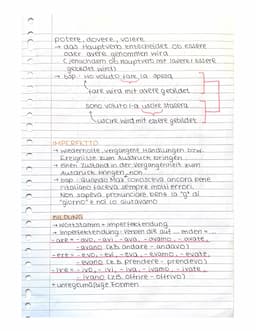 potere, dovere, volere
→ das Hauptverb entscheidet ob essere
oder avere genommen wird
(jenachdem ob Hauptverb mit avere/essere
gebildet wird)
→ bsp.: Ho voluto fare la spesa
fare wird mit avere gebildet
sono voluto/-a uscire stasera
uscire wird mit essere gebildet
IMPERFETTO
→ wiederholte, vergangene Handlungen bzw.
Ereignisse zum Ausdruck bringen
→ einen Zustand in der Vergangenheit zum
Ausdruck bringen, non
→ bsp.: Quando Max conosceva ancora bene
l'italiano faceva sempre molti errori.
Non sapeva pronunciare bene la "g" di
"giorno" e noi lo aiutavamo
BILDUNG
→ Wortstamm + Imperfektendung
→ Imperfektendung: Verben die auf ... enden = ...
-are = -avo, -avi, -ava, -avamo, -avate,
-avano (z.B. andare - andavo)
-ere = -evo, -evi, -eva, -evamo, -evate,
-evano (z.B. prendere - prendevo)
-ire = -ivo, -ivi, -iva, -ivamo, -ivate,
-ivano (z.B. offrire - offrivo)
+ unregelmäßige Formen